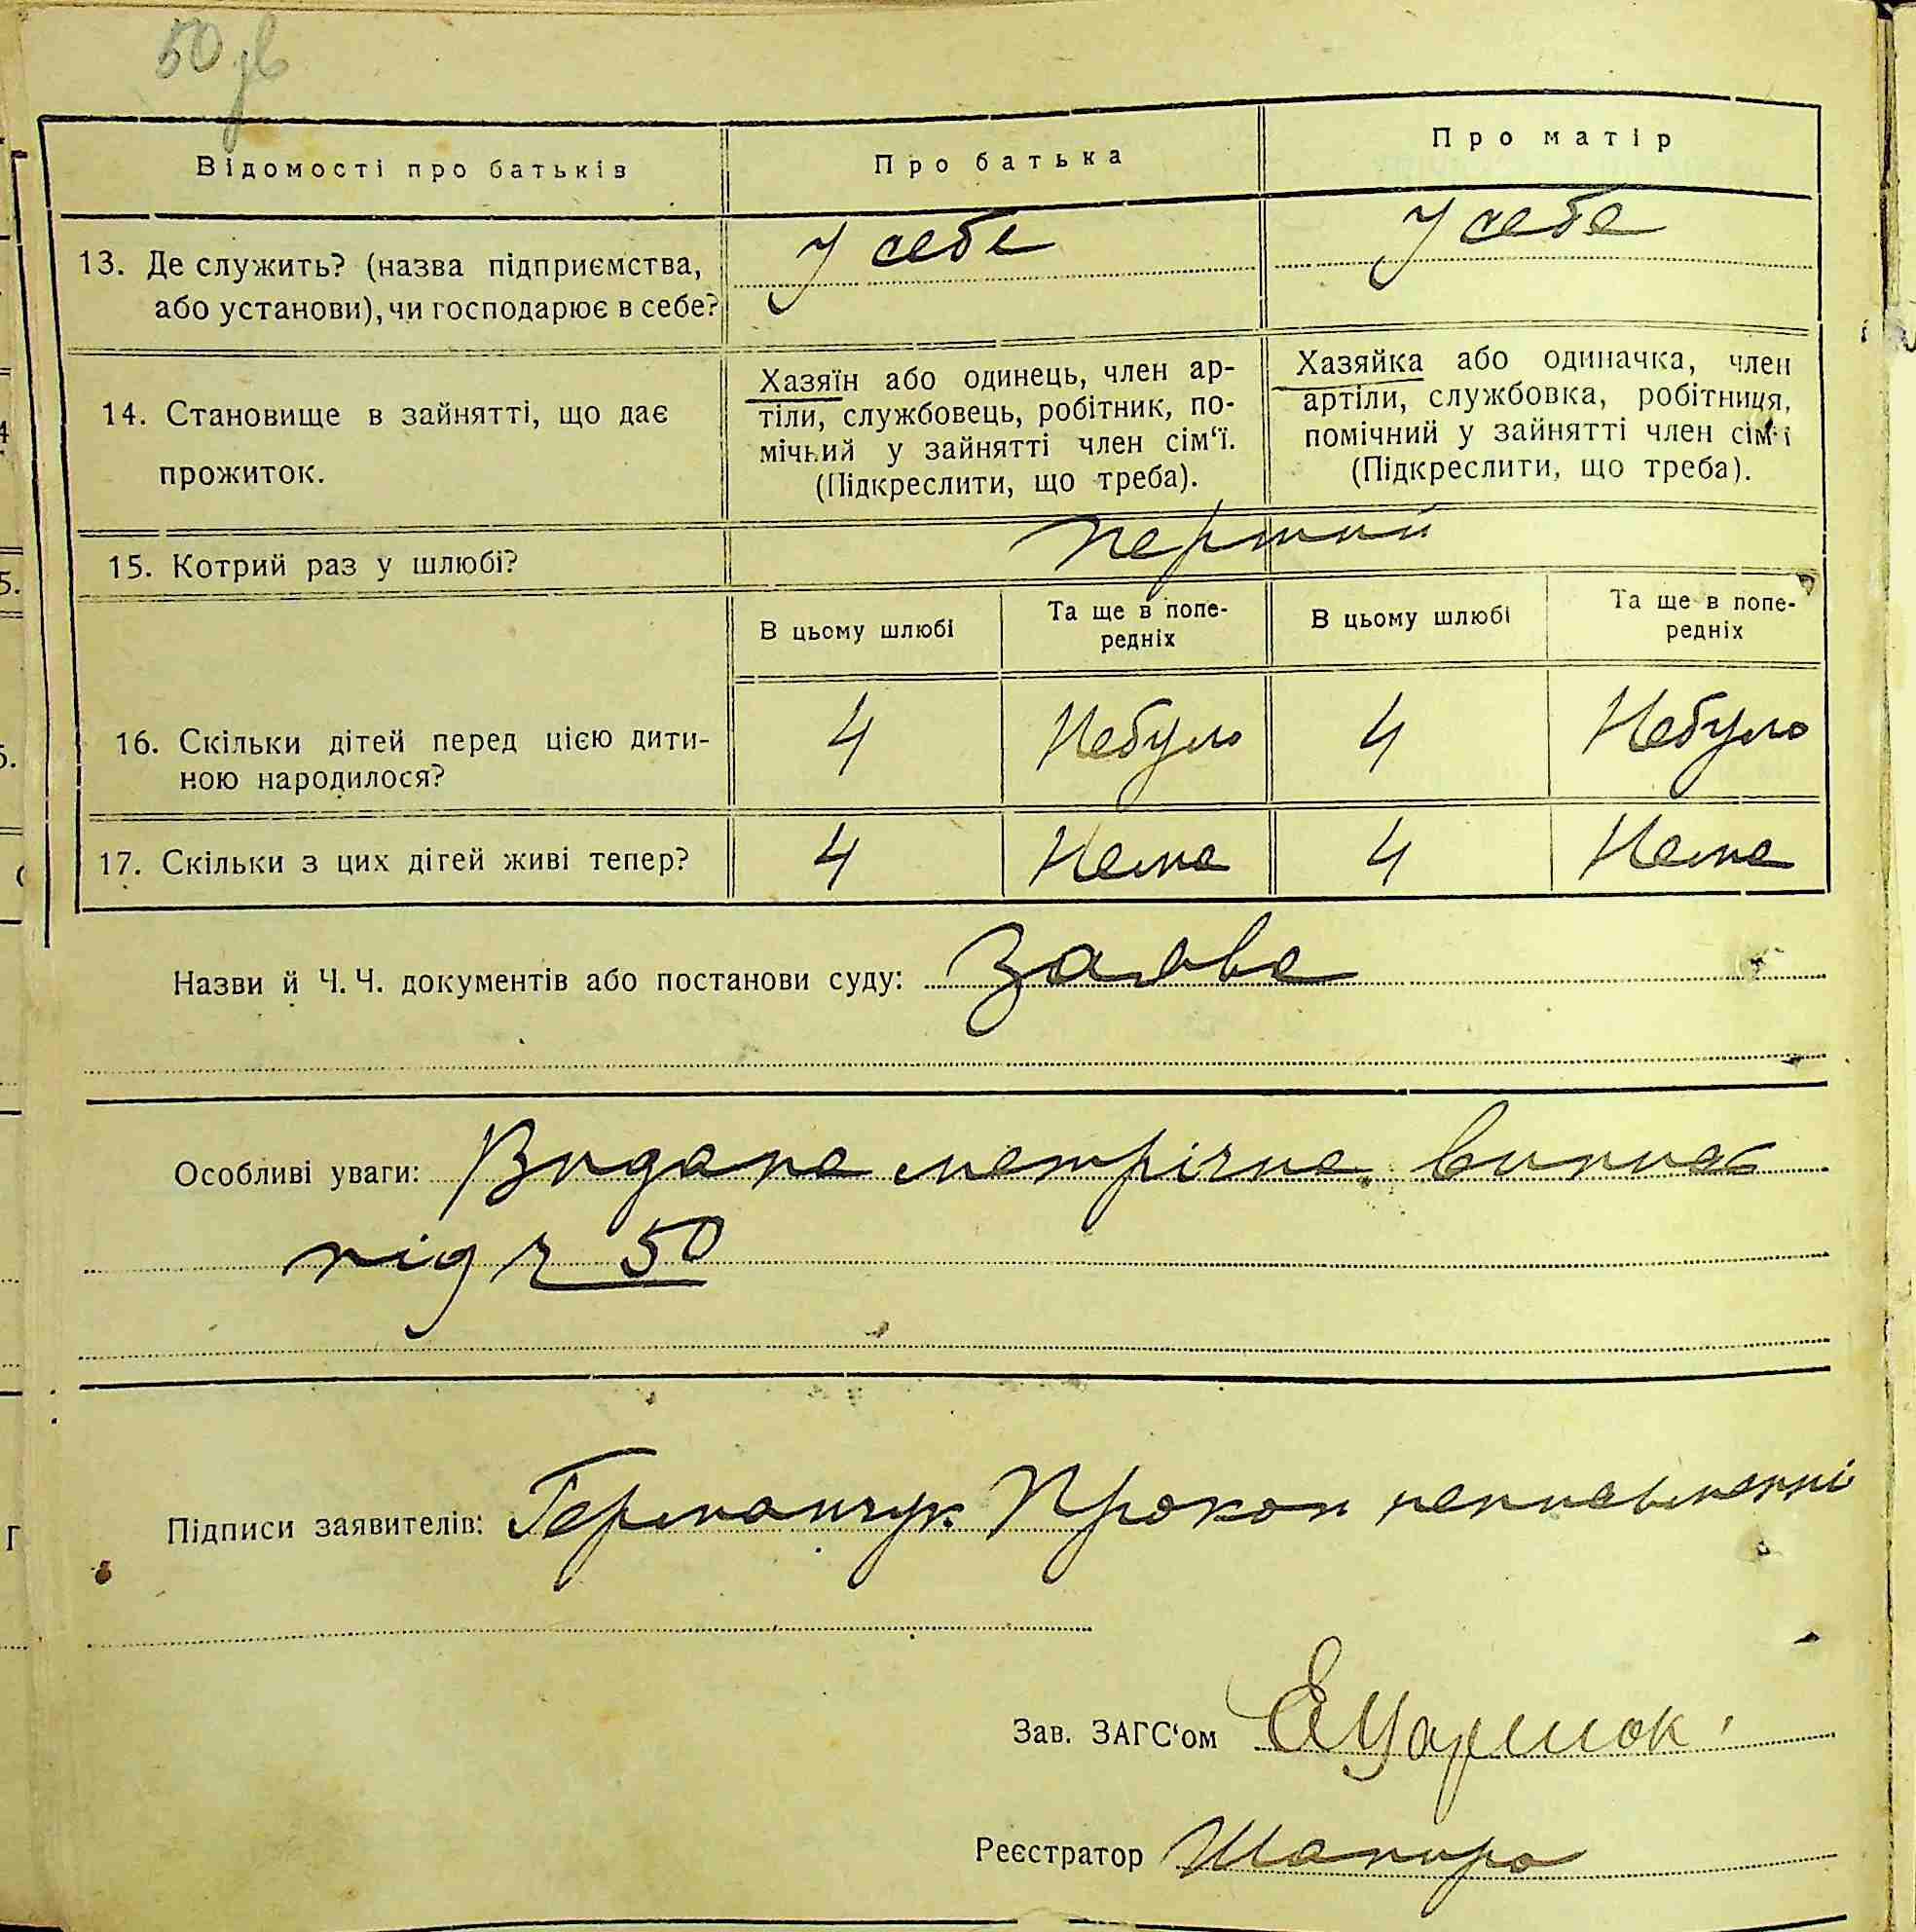 50 зв
Відомості про батьків
Про батька
Про матір
13. Де служить? (назва підприємства,
або установи), чи господарює в себе?
У себе
У себе
14. Становище в зайнятті, що дає
прожиток.
Хазяїн або одинець, член ар-
тіли, службовець, робітник, по-
мічний у зайнятті член сім‘ї.
(Підкреслити, що треба).
Хазяйка або одиначка, член
артіли, службовка, робітниця,
помічний у зайнятті член сім‘ї
(Підкреслити, що треба).
15. Котрий раз у шлюбі?
первий
В цьому шлюбі
Та ще в попе-
редніх
В цьому шлюбі
Та ще в попе-
редніх
16. Скільки дітей перед цією дити-
ною народилося?
4 Небуло 4 Небуло
17. Скільки з цих дітей живі тепер?
4 Нема 4 Нема
Назви й Ч. Ч. документів або постанови суду: Заява
Особливі уваги: Видана метрічна випись
під ч 50
Підписи заявителів: Германчук Прокоп неписьменні
Зав. ЗАГС‘ом
Реєстратор Шапиро